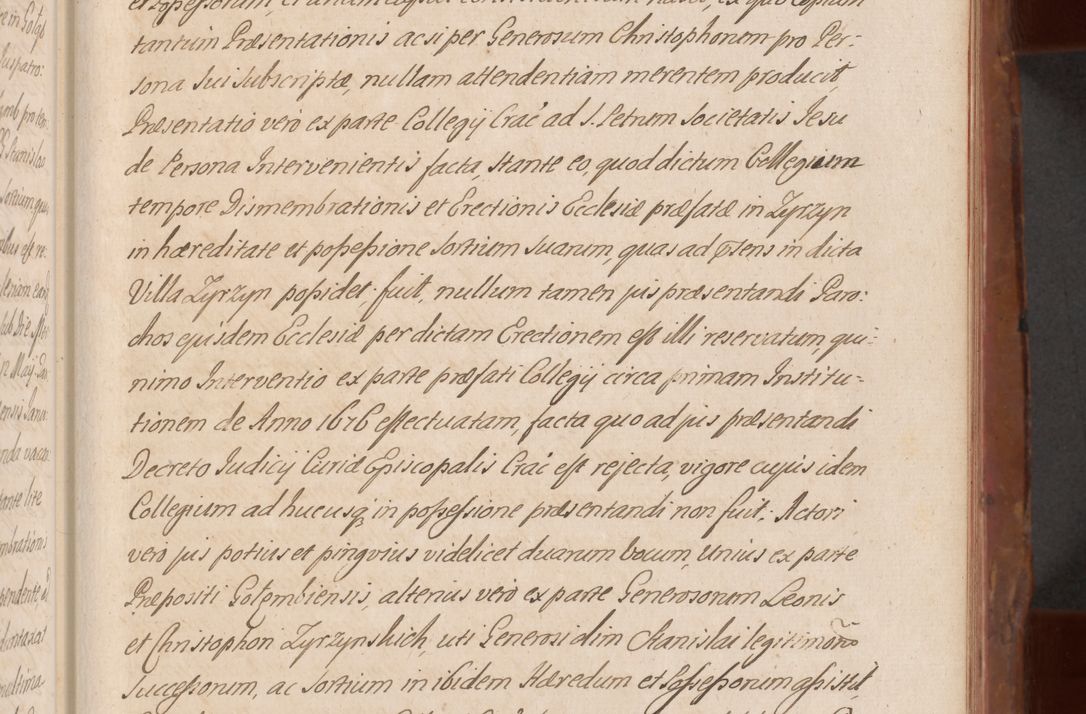 tantum Præsentationis ac si per Generosum Christophorum pro Per-
sona sui subscriptæ, nullam attendentiam merentem producit,
Præsentatio vero ex parte Collegij Crac̃ ad S. Petrum Societatis Jesu
de Persona Intervenientis facta, stante eo, quod dictum Collegium
tempore Dismembrationis et Erectionis Ecclesiæ præfatæ in Zyrzyn
in hæreditate et possessione Sortium suarum, quas ad p̃sens in dicta
Villa Zyrzyn possidet fuit, nullum tamen jus præsentandi Paro-
chos ejusdem Ecclesiæ per dictam Erectionem est illi reservatum, qui-
nimo Interventio ex parte præfati Collegij circa primam Institu-
tionem de Anno 1676 effectuatam, facta quo ad jus præsentandi
Decreto Judicij Curiæ Episcopalis Crac̃ est rejecta, vigore cujus idem
Collegium ad hucusq; in possessione præsentandi non fuit. Actori
vero jus potius et pingvius videlicet duarum vocum, Unius ex parte
Præpositi Gołembiensis, alterius vero ex parte Generosorum Leonis
et Christophori Zyrzynskich, uti Generosi olim Stanislai legitimorõ
Successorum, ac Sortium in ibidem Hæredum et Possessorum assistit,